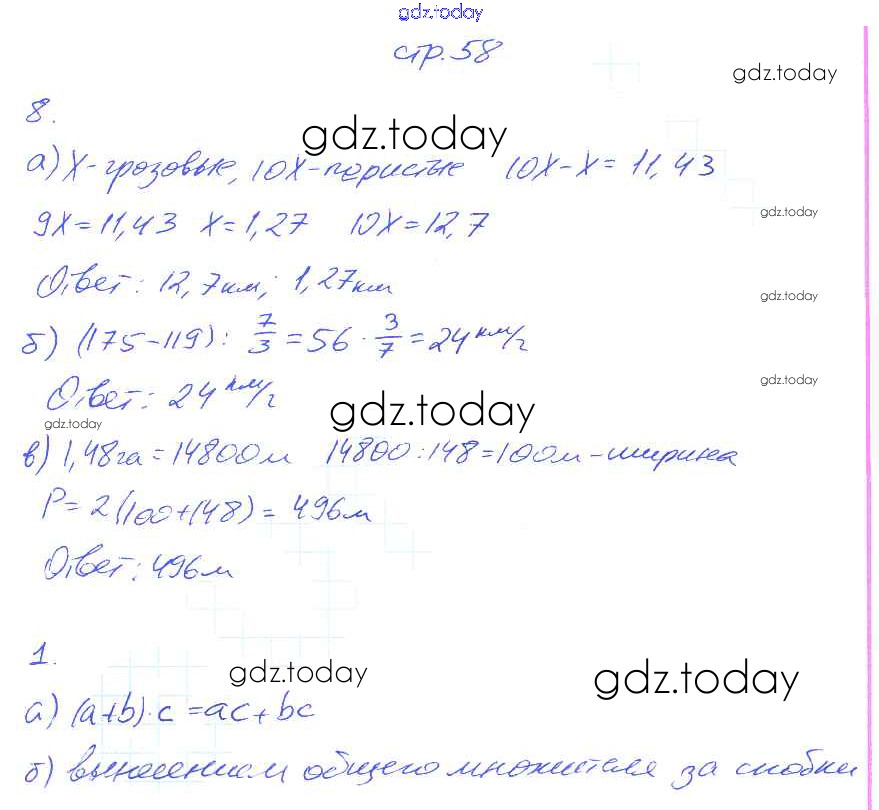 gdz.today
стр. 58
gdz.today
8.
gdz.today
а) X - грозовые, 10X - перистые 10X - X = 11,43
9X = 11,43 X = 1,27 10X = 12,7
gdz.today
Ответ: 12,7 км; 1,27 км
gdz.today
б) (175 - 119) : 7/3 = 56 · 3/7 = 24 км/г
gdz.today
Ответ: 24 км/г
gdz.today
gdz.today
в) 1,48 га = 14800 м 14800 : 148 = 100 м - ширина
P = 2 (100 + 148) = 496 м
Ответ: 496 м
1.
gdz.today
gdz.today
а) (a+b)·c = ac + bc
б) вынесением общего множителя за скобки